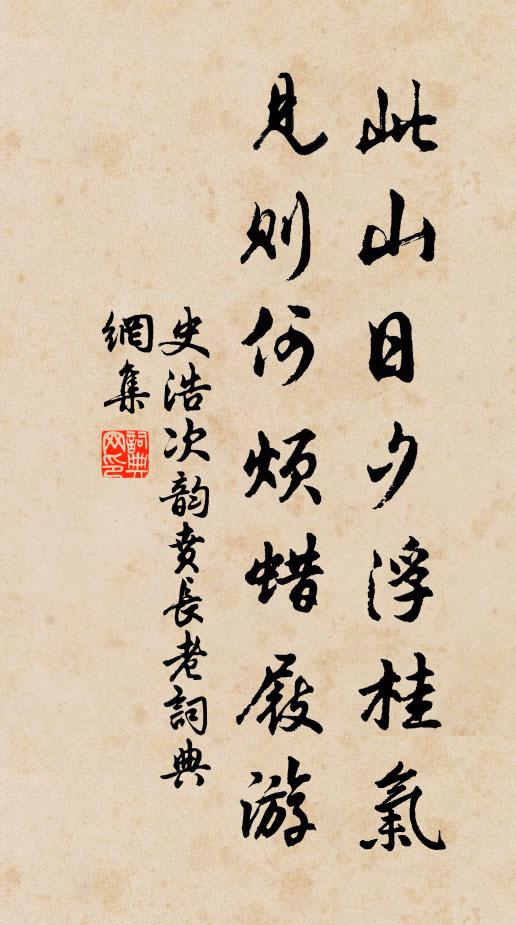 此山日夕浮桂氣
見則何煩蜡屐游
史浩次韵賁長老詞典
網集
詞典網印